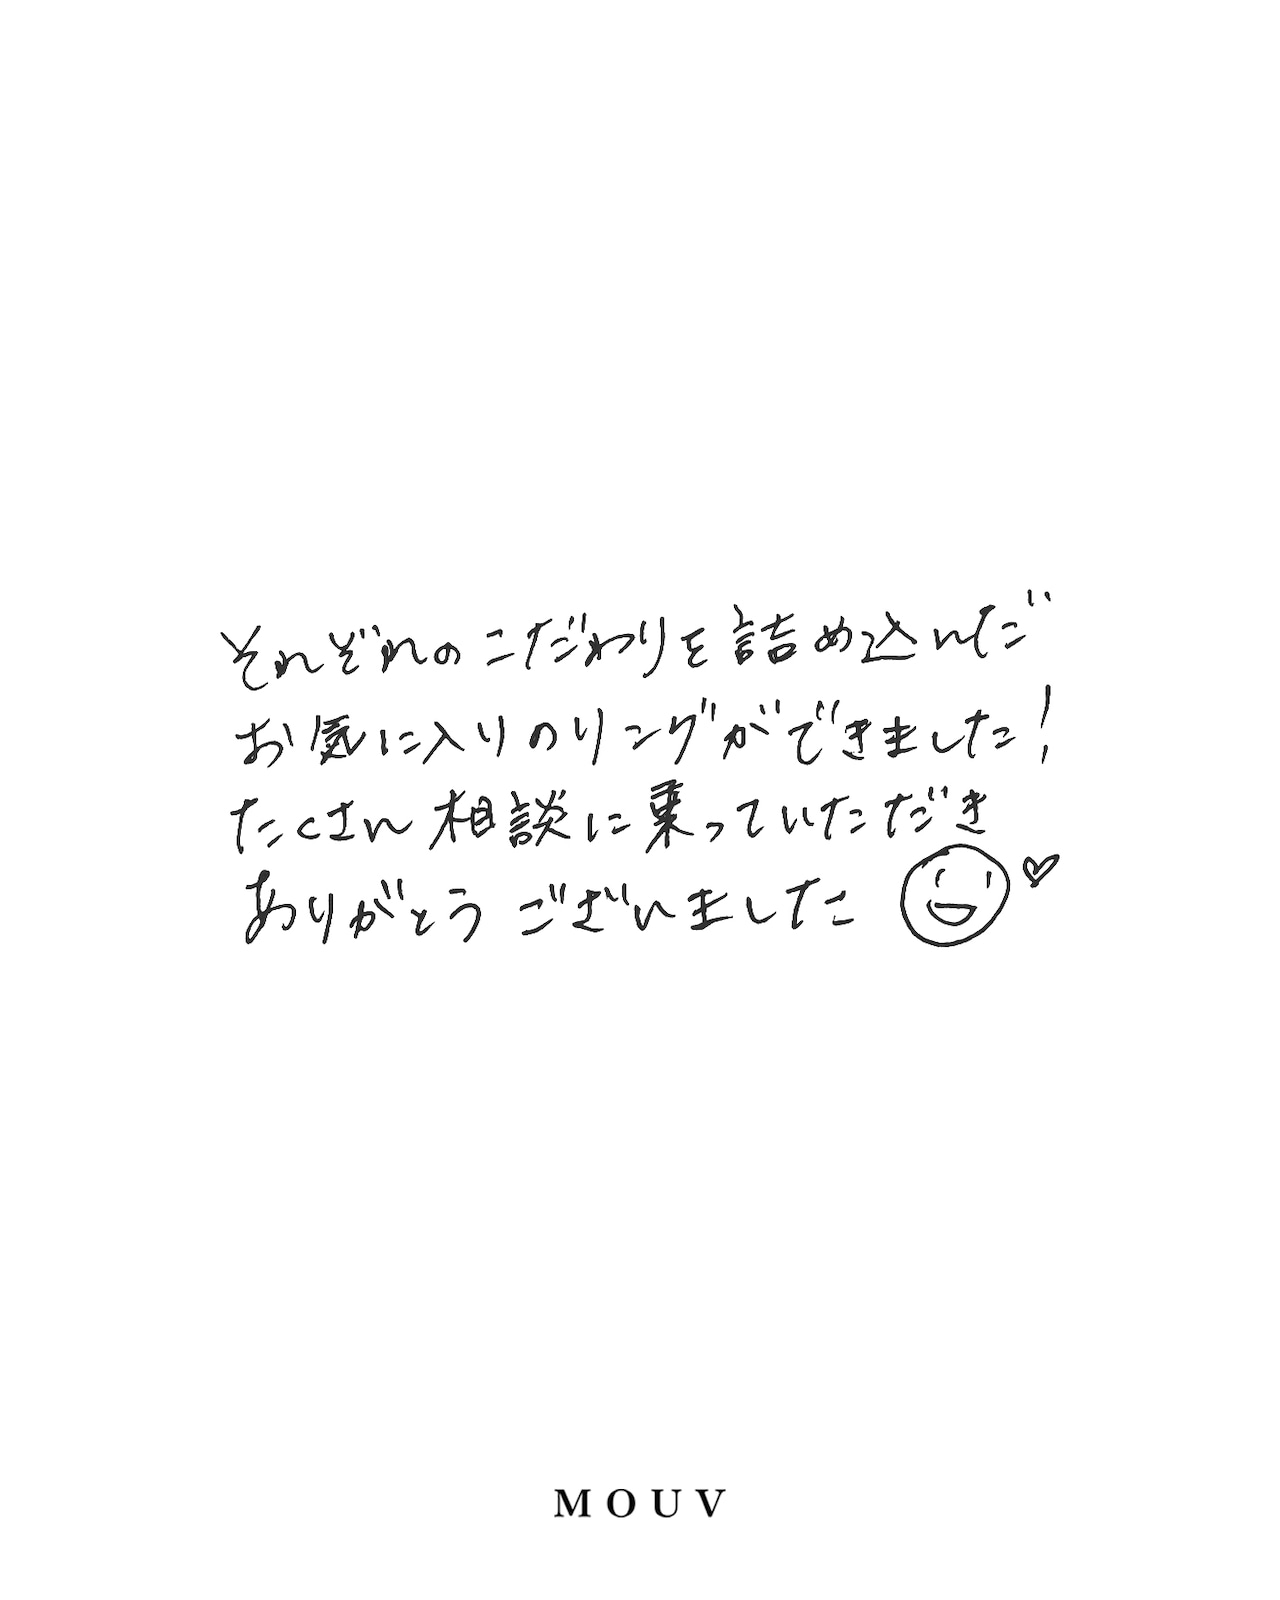 それぞれのこだわりを詰め込んだ
お気に入りのリングができました!
たくさん相談に乗っていただき
ありがとうございました
MOUV